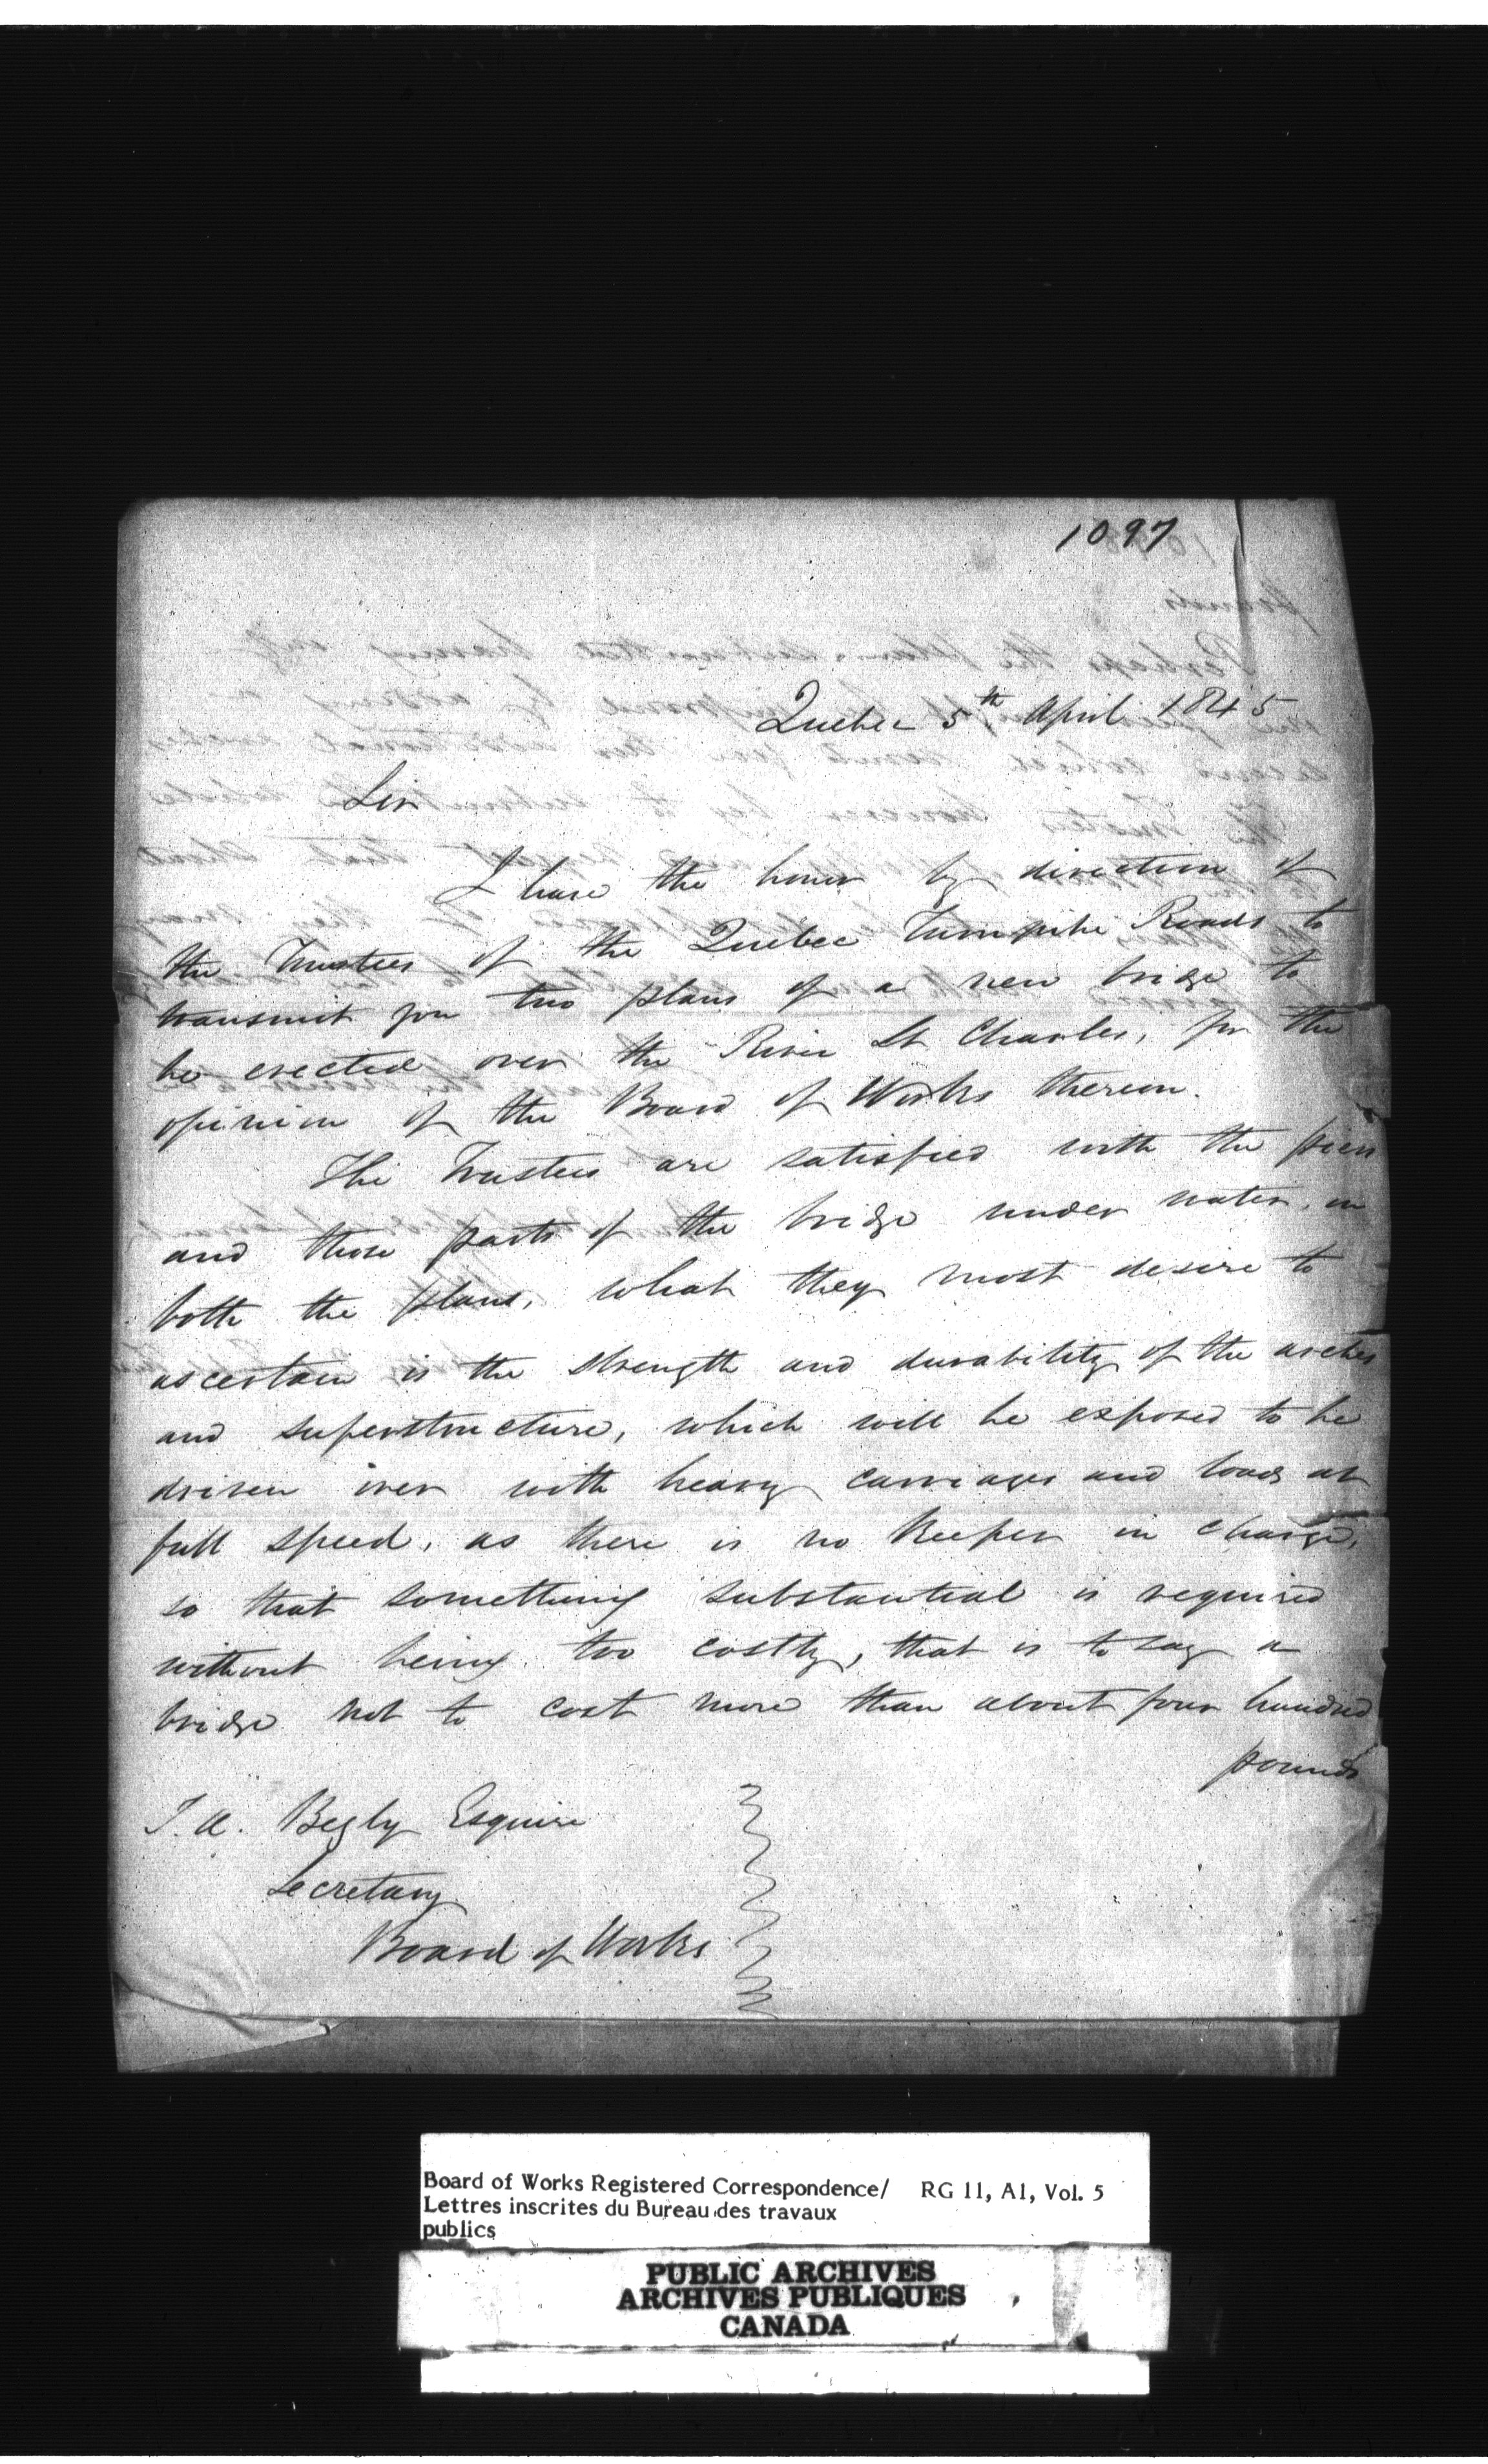 1097
Quebec 5th April 1845
Sir
I have the honor by direction of
the Trustees of the Quebec Turnpike Roads to
transmit you two plans of a new bridge to
be erected over the River St Charles, for the
opinion of the Board of Works thereon.
The Trustees are satisfied with the piers
and those parts of the bridge under water, in
both the plans, what they most desire to
ascertain is the strength and durability of the arches
and superstructure, which will be exposed to be
driven over with heavy carriages and loads at
full speed, as there is no keeper in charge,
so that something substantial is required
without being too costly, that is to say a
bridge not to cost more than about four hundred
pounds
T. A. Begly Esquire
Secretary
Board of Works
Board of Works Registered Correspondence/ RG 11, A1, Vol. 5
Lettres inscrites du Bureau des travaux
publics
PUBLIC ARCHIVES
ARCHIVES PUBLIQUES
CANADA